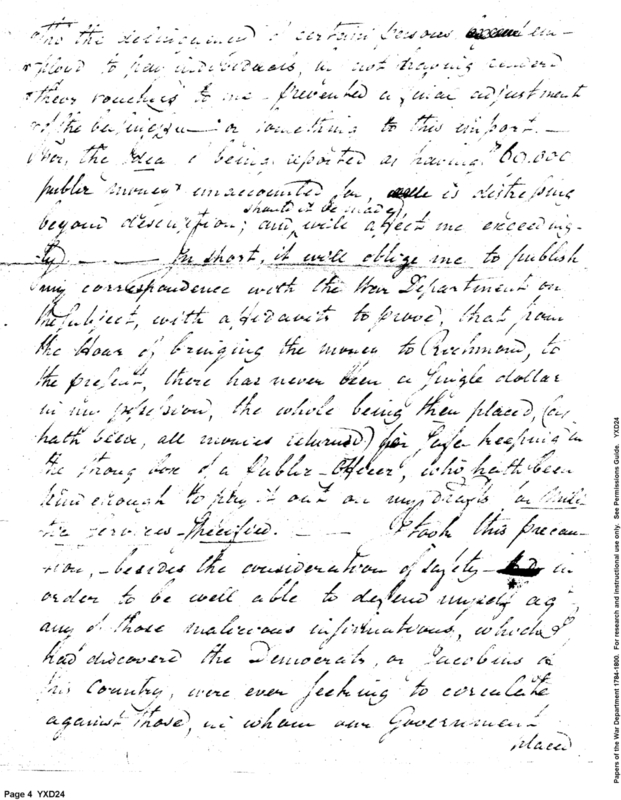 tho the delinquency of certain persons em-
ployed to pay individuals, in not having rendered
their vouchers to me prevented a final adjustment
of the business — or something to this import. —
Now, the Idea of being reported as having 60.000
public money unaccounted for, is distressing
beyond description; and, should it be made, will affect me exceeding-
ly — — In short, it will oblige me to publish
my correspondence with the War Department on
the Subject, with affidavits to prove, that from
the Hour of bringing the money to Richmond, to
the present, there has never been a Single dollar
in my possession, the whole being then placed, (as
hath been, all monies returned) for Safe keeping in
the strong box of a Public Officer, who hath been
kind enough to pay it out on my drafts for
services Specified. — — I took this precau-
tion, – besides the consideration of safety – in
order to be well able to defend myself agt
any of those malicious informations, which I
had discovered the Democrats, or Jacobins in
this Country, were ever seeking to circulate
against those, in whom our Government
placed
Page 4 YXD24
Papers of the War Department 1784-1800. For research and instructional use only. See Permissions Guide. YXD24